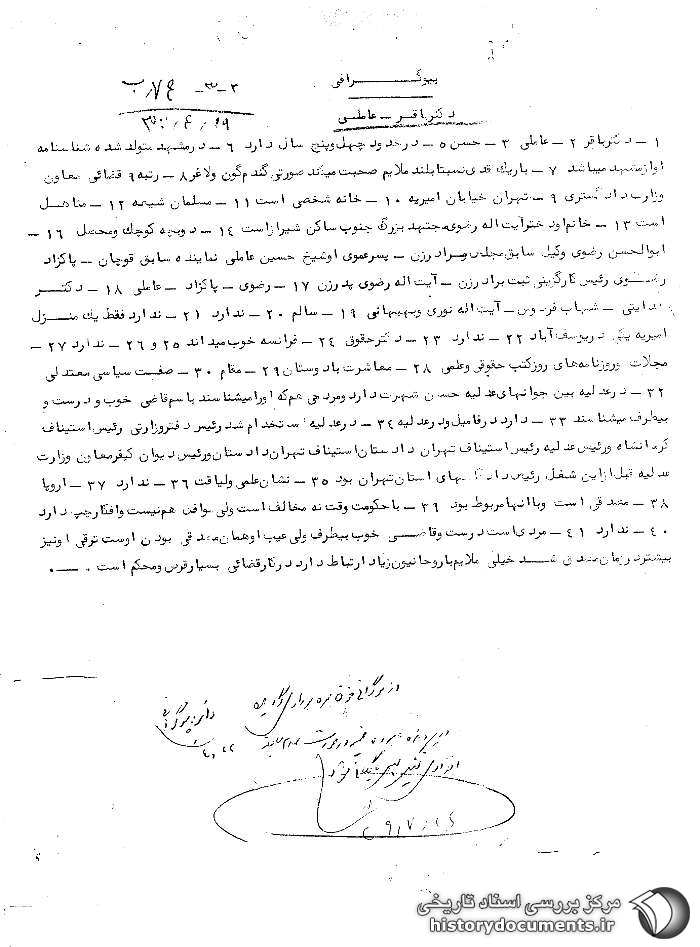 بیوگرافی
۳ـ۳ـ
دکتر باقر ـ عاملی
۱ ـ دکتر باقر ۲ ـ عاملی ۳ ـ حسن ۵ ـ در حدود چهل و پنج سال دارد ۶ ـ در مشهد متولد شده شناسنامه
او از مشهد میباشد ۷ ـ باریک قدی نسبتا بلند ملایم صحبت میکند صورتی گندم گون و لاغر ۸ ـ رتبه ۹ قضائی معاون
وزارت دادگستری ۹ ـ تهران خیابان امیریه ۱۰ ـ خانه شخصی است ۱۱ ـ مسلمان شیعه ۱۲ ـ متاهل
است ۱۳ ـ خانم او دختر آیت اله رضوی مجتهد بزرگ جنوب ساکن شیراز است ۱۴ ـ دو بچه کوچک و محصل ۱۶ ـ
ابوالحسن رضوی وکیل سابق مجلس برادر زن ـ پسر عموی او شیخ حسین عاملی نماینده سابق قوچان ـ پاکزاد
رضوی رئیس کارگزینی ثبت برادر زن ـ آیت اله رضوی پدر زن ۱۷ ـ رضوی ـ پاکزاد ـ عاملی ۱۸ ـ دکتر
هدایتی ـ شهاب فردوس ـ آیت اله نوری و بهبهانی ۱۹ ـ سالم ۲۰ ـ ندارد ۲۱ ـ ندارد فقط یک منزل
امیریه یکی در یوسف آباد ۲۲ ـ ندارد ۲۳ ـ دکتر حقوقی ۲۴ ـ فرانسه خوب میداند ۲۵ و ۲۶ ـ ندارد ۲۷ ـ
مجلات و روزنامه های روز کتب حقوقی و علمی ۲۸ ـ معاشرت با دوستان ۲۹ ـ مقام ۳۰ ـ صفیت سیاسی معتدلی
۳۲ ـ در عدلیه بین جوانهای عدلیه حسن شهرت دارد و مردمی هم که او را میشناسند باسم قاضی خوب و درست و
بیطرف میشناسند ۳۳ ـ دارد در فامیل و در عدلیه ۳۴ ـ در عدلیه استخدام شد رئیس دفتر وزارتی رئیس استیناف
کرمانشاه و رئیس عدلیه رئیس استیناف تهران دادستان استیناف تهران دادستان و رئیس دیوان کیفر معاون وزارت
عدلیه قبل از این شغل رئیس دادگاههای استان تهران بود ۳۵ ـ نشان علمی و لیاقت ۳۶ ـ ندارد ۳۷ ـ اروپا
۳۸ ـ مصدقی است و با آنها مربوط بود ۳۹ ـ با حکومت وقت نه مخالف است ولی موافق هم نیست و افکار چپ دارد
۴۰ ـ ندارد ۴۱ ـ مردی است درست و قاضی خوب بیطرف ولی عیب او همان مصدقی بودن اوست ترقی او نیز
بیشتر در زمان مصدق شد خیلی ملایم با روحانیون زیاد ارتباط دارد در کار قضائی بسیار قرص و محکم است
مرکز بررسی اسناد تاریخی
historydocuments.ir